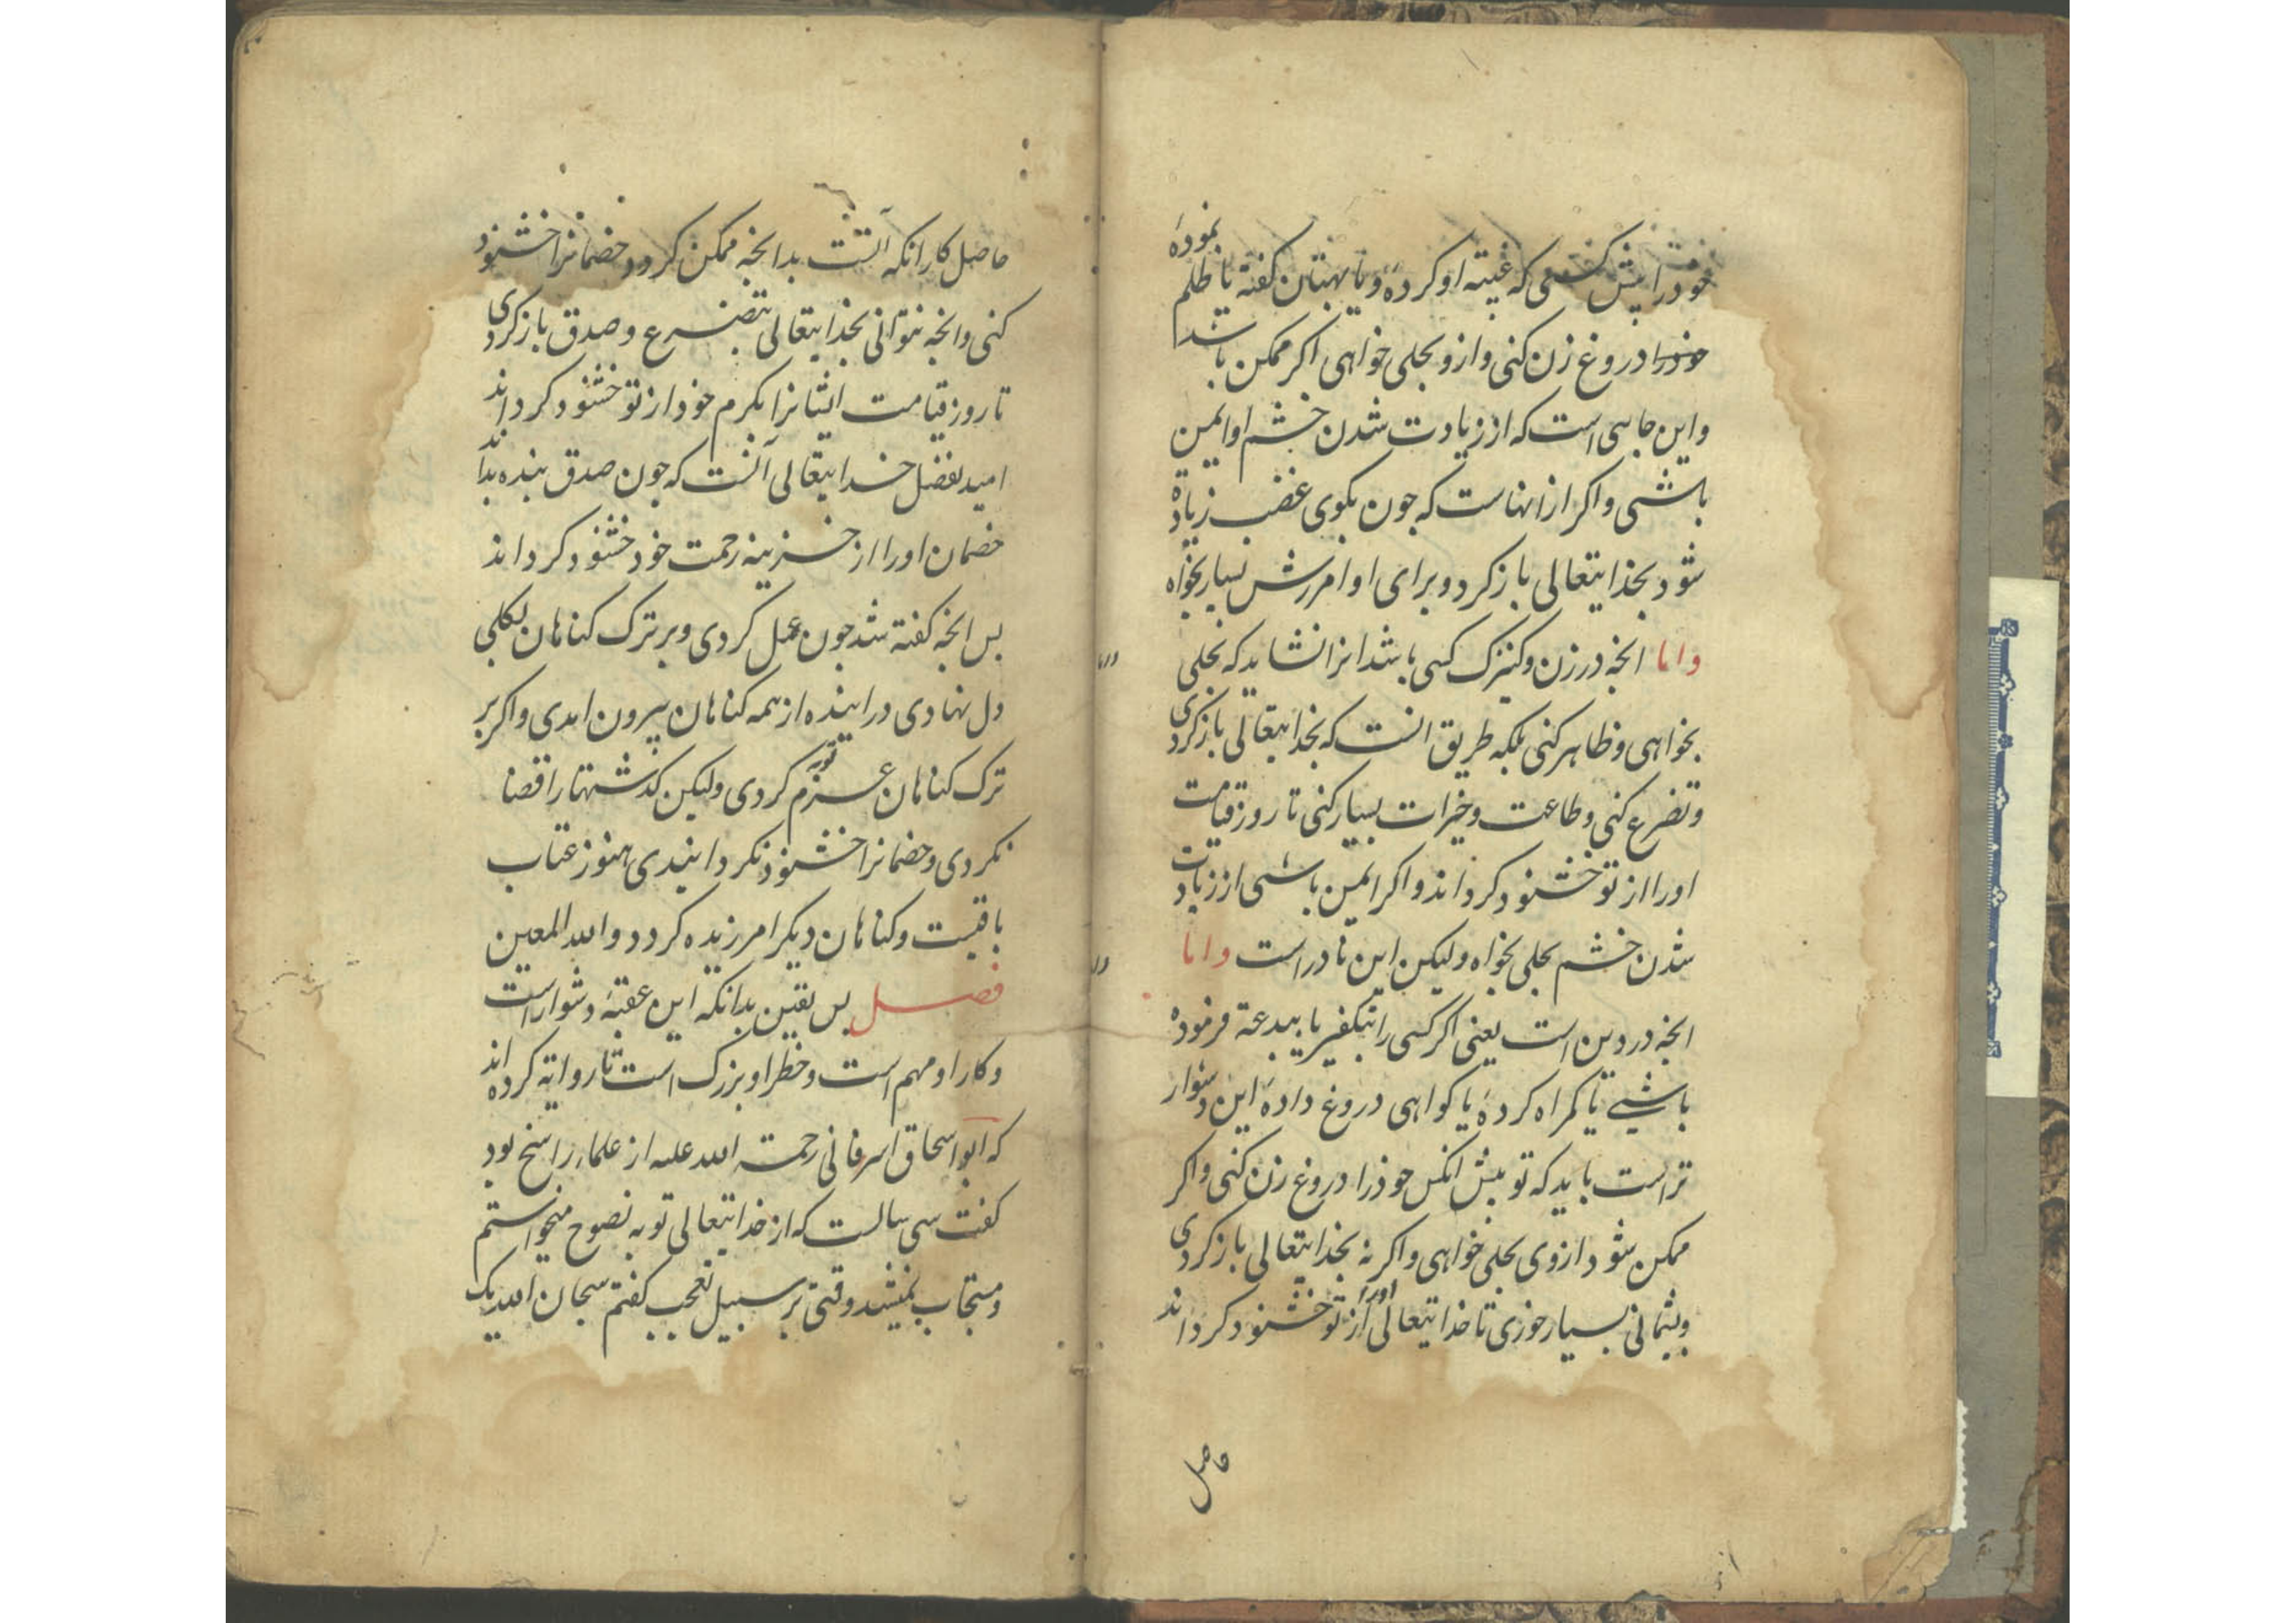 خودرا پیش کسی که غیبته او کردهٔ و یا بهتان کفته یا ظلم نمودهٔ
خودرا دروغ زن کنی و ازو بحلی خواهی اکر ممکن باشد
و این جایی است که از زیادت شدن خشم او ایمن
باشی و اکر ازانهاست که جون بکوی غضب زیادة
شود بخذایتعالی بازکرد و برای او امرزش بسیار بخواه
و اما انجه در زن و کنیزک کسی باشد انرا نشاید که بحلی
بخواهی و ظاهر کنی بلکه طریق انست که بخدایتعالی بازکردی
و تضرع کنی و طاعت و خیرات بسیار کنی تا روز قیامت
اورا از تو خشنود کرداند و اکر ایمن باشی از زیادت
شدن خشم بحلی بخواه ولیکن این نادر است و اما
انجه در دین است یعنی اکر کسی را بتکفیر یا ببدعة فرموده
باشی یا کمراه کردهٔ یا کواهی دروغ دادهٔ این دشوار
تر است باید که تو بیش انکس خوذرا دروغ زن کنی و اکر
ممکن شود ازوی بحلی خواهی و اکر نه بخذایتعالی بازکردی
و بشمانی بسیار خوری تا خدایتعالی اورا از تو خشنود کرداند
حاصل
حاصل کار انکه آنست بدانجه ممکن کردد خصمانرا خشنود
کنی و انجه نتوانی بخذایتعالی بتضرع و صدق بازکردی
تا روز قیامت ایشانرا بکرم خود از تو خشنود کرداند
امید بفضل خدایتعالی آنست که جون صدق بنده بداند
خصمان اورا از خزینه رحمت خود خشنود کرداند
بس انجه کفته شد جون عمل کردی و بر ترک کناهان بکلی
دل نهادی در اینده از همه کناهان بیرون امدی و اکر بر
ترک کناهان عزم توبه کردی ولیکن کذشتهارا قضا
نکردی و خصمانرا خشنود نکردانیدی هنوز عتاب
باقیست و کناهان دیکر امرزیده کردد و الله المعین
فصل بس یقین بدانکه این عقبهٔ دشوار است
و کار او مهم است و خطر او بزرک است تا روایة کرده اند
که ابو اسحاق اسرفانی رحمة الله علیه از علماء راسخ بود
کفت سی سالست که از خدایتعالی توبه نصوح میخواستم
و مستجاب نمیشد وقتی بر سبیل تعجب کفتم سبحان الله یک